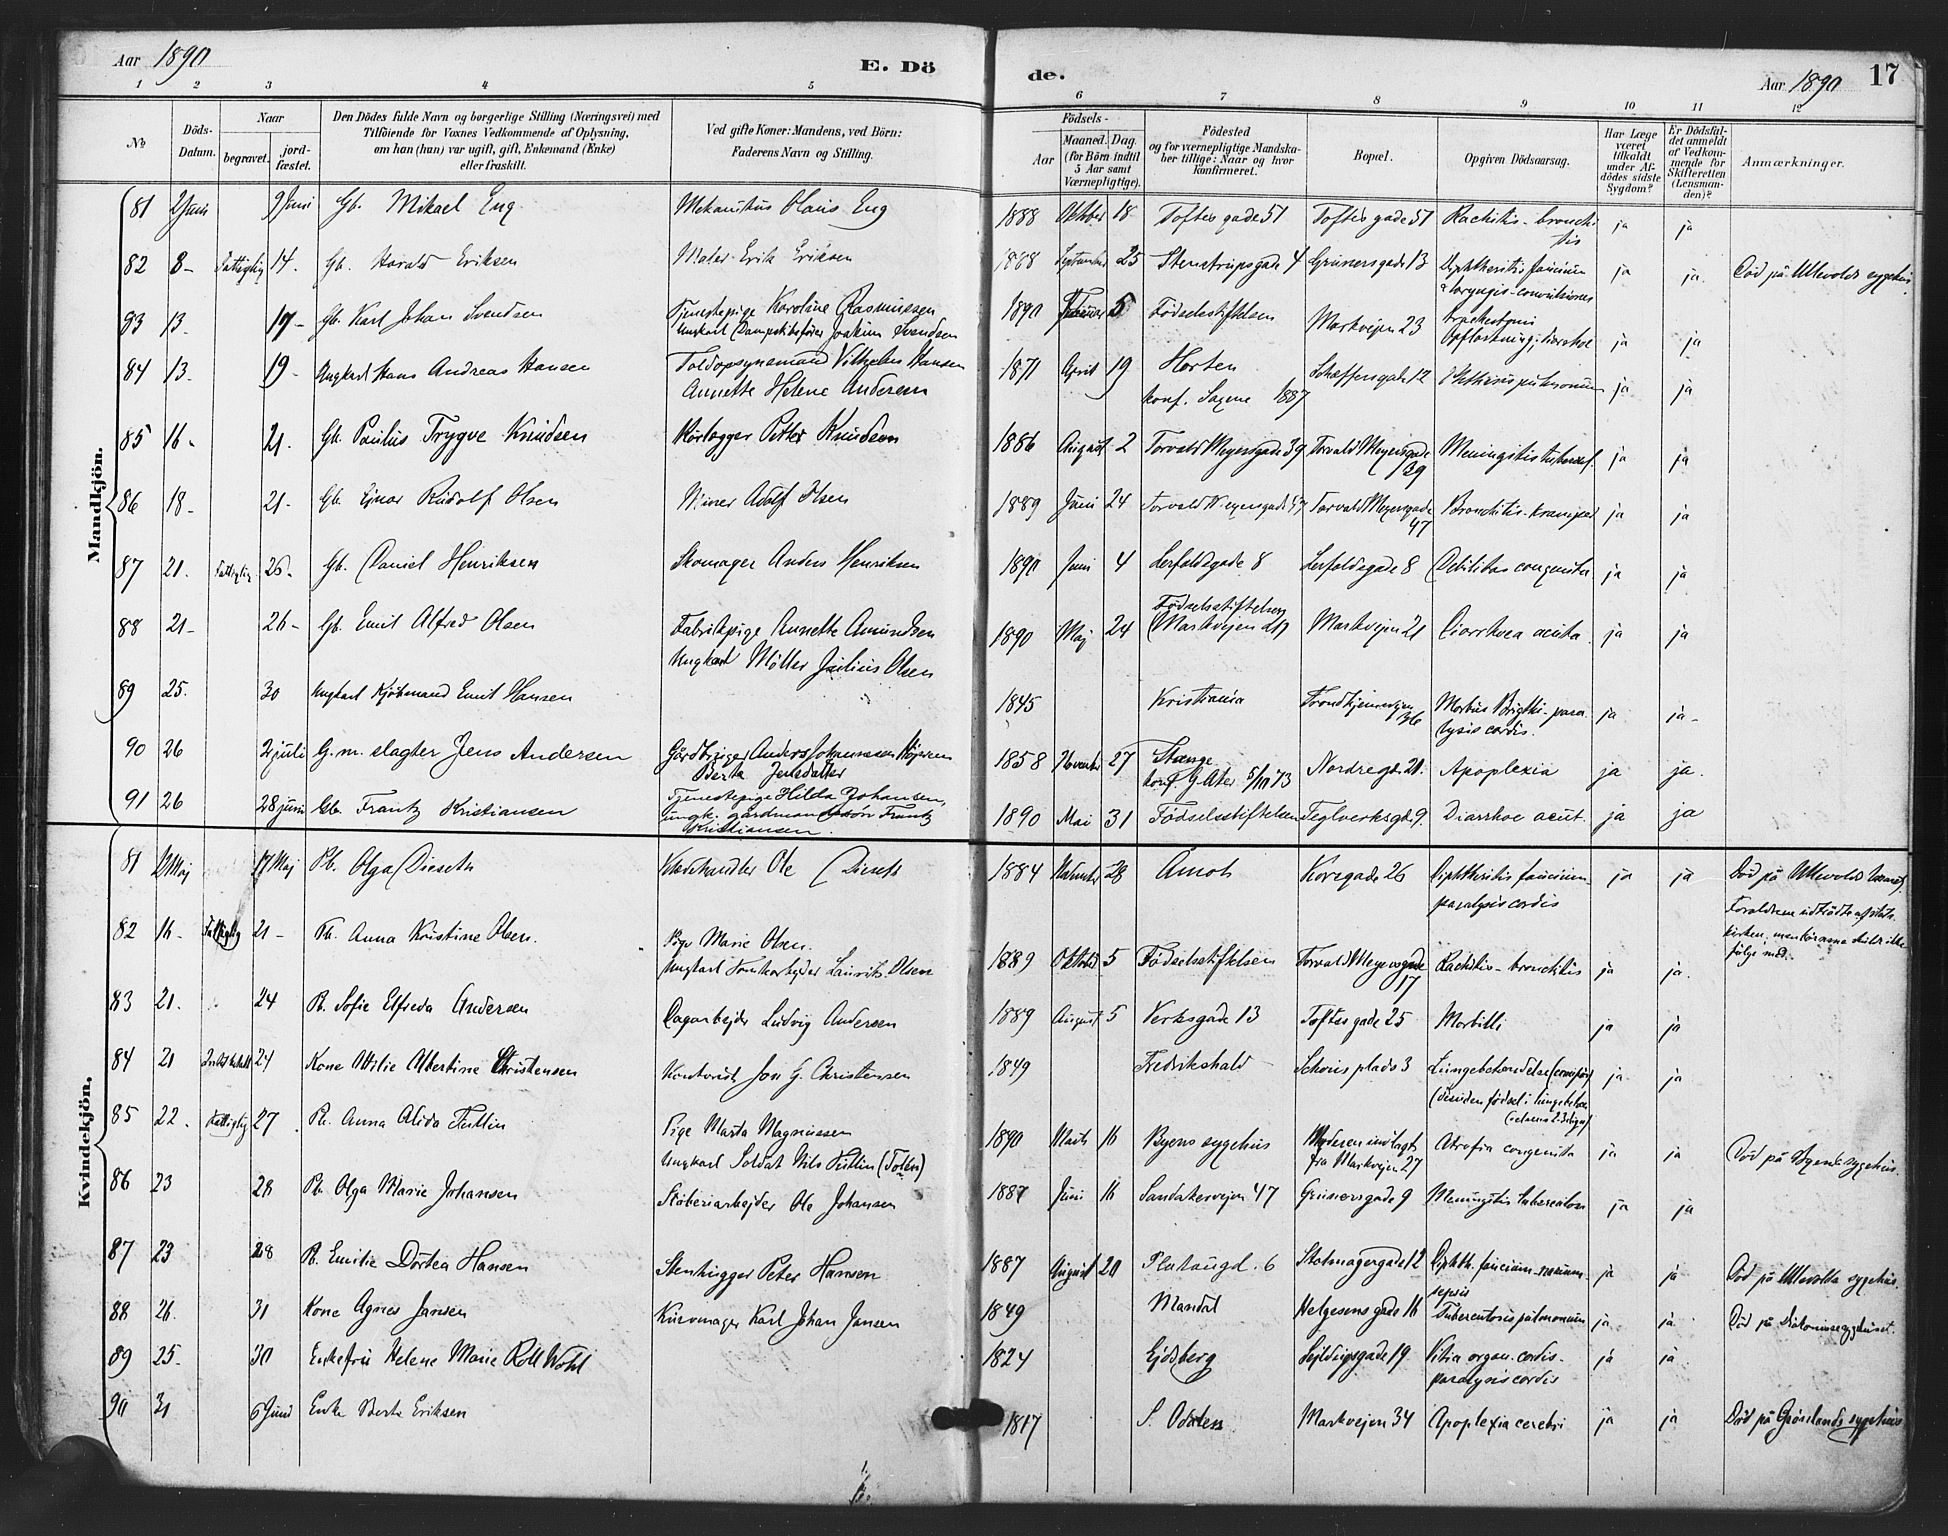 Aar 1890
E. Dö
de.
Aar 1890
17
1 2 3 4 5 6 7 8 9 10 11 12
No
Döds-Datum.
Naar
begravet.
jordfæstet.
Den Dödes fulde Navn og borgerlige Stilling (Næringsvei) med
Tilföiende for Voxnes Vedkommende af Oplysning,
om han (hun) var ugift, gift, Enkemand (Enke)
eller fraskilt.
Ved gifte Koner: Mandens, ved Börn:
Faderens Navn og Stilling.
Födsels-
Aar
Maaned. Dag.
(for Börn indtil
5 Aar samt
Værnepligtige).
Födested
og for værnepligtige Mandska-
ber tillige: Naar og hvor
konfirmeret.
Bopæl.
Opgiven Dödsaarsag.
Har Læge
været
tilkaldt
under Af-
dödes sidste
Sygdom?
Er Dödsfal-
det anmeldt
af Vedkom-
mende for
Skifteretten
(Lensman-
den)?
Anmærkninger.
Mandkjön.
81 2 Juni 9 Juni Gb. Mikael Eng Mekanikus Olaus Eng 1888 Oktober 18 Toftesgade 51 Toftesgade 51 Rachitis - bronchitis ja ja
82 8 - Fattiglig 14. Gb. Harald Eriksen Maler Erik Eriksen 1888 September 25 Stenstrupsgade 4 Grünersgade 13 Diphtheritis faucium & laryngis - convulsiones ja ja. Död på Ullevolds sygehus.
83 13. 17 - Gb. Karl Johan Svendsen Tjenestepige Karoline Rasmussen
Ungkarl Joakim Svendsen 1890 5 Födselsstiftelsen Markvejen 23 ja ja
84 13. 19 - Ungkarl Hans Andreas Hansen Toldopsynsmand Vilhelm Hansen
Annette Helene Andersen 1871 April 19 Horten
konf. 1887 Schæffersgade 12 Phthisis pulmonum ja ja
85 16 - 21. Gb. Paulus Trygve Knudsen Rörlægger Petter Knudsen 1886 August 2 Torvald Meyersgade 39 Torvald Meyersgade 39 Meningitis tubercul. ja ja
86 18 - 21 - Gb. Ejnar Rudolf Olsen Adolf Olsen 1889 Juni 24 Torvald Meyersgade 47 Torvald Meyersgade 47 Bronchitis - kramper ja ja
87 21. Fattiglig 26 - Gb. Daniel Henriksen Skomager Anders Henriksen 1890 Juni 4 Lerfaldsgade 8 Lerfaldsgade 8 Debilitas congenita ja ja
88 21 - 26 - Gb. Emil Alfred Olsen Fabrikpige Annette Amundsen
Ungkarl Möller Julius Olsen 1890 Maj 24 Födselsstiftelsen
(Markvejen 21) Markvejen 21 Diarrhoea acuta ja ja
89 25. 30 Ungkarl Kjöbmand Emil Hansen 1845 Kristiania Trondhjemsvejen 36 Morbus Brigthi - para-
lysis cordis. ja ja -
90 26 2 juli G. m. slagter Jens Andersen Gårdbruger Anders Johannessen
Berta Jensdatter 1858 November 27 Stange
konf. 5/10 73 Nordregd. 21. Apoplexia ja ja.
91 26 28 juni Gb. Frantz Kristiansen Tjenestepige Hilda Johansen,
ungk. Frantz
Kristiansen. 1890 Mai 31 Födselsstiftelsen Teglverksgd. 9. Diarrhoe acut. ja ja
Kvindekjön.
81 Maj 17 Maj Pb. Olga Dieseth Ole Dieseth 1884 28 Åmot Korsgade 26 Diphtheritis faucium -
paralysis cordis ja ja Död på Ullevolds
Foreldrene udtrådte af stats-
kirken,
følge med.
82 16 - Fattiglig 21 - Pb. Anna Kristine Olsen. Pige Marie Olsen.
Ungkarl Laurits Olsen 1889 Oktober 5 Födselsstiftelsen Torvald Meyersgade 17 Rachitis - bronchitis ja ja.
83 21. 24 Pb. Sofie Elfreda Andersen Dagarbejder Ludvig Andersen 1889 August 5 Verksgade 13 Toftesgade 25 Morbilli ja ja
84 21 24 Kone Otilie Albertine Christensen Kontorist Jon G. Christensen 1849 Fredrikshald Schous plads 3 Lungebetændelse
(desuden födsel i lungebetæn- ja ja
85 22. Fattiglig 27 Pb. Anna Alida Tutlin Pige Marta Magnussen
Ungkarl Soldat Nils Tutlin (Toten) 1890 Marts 16 Byens sygehus Moderen indlagt
fra Markvejen 27 Atrofia congenita ja ja Död på Byens sygehus.
86 23 28 Pb. Olga Marie Johansen Støberiarbejder Ole Johansen 1887 Juni 16 Sandakervejen 47 Grünersgade 9 Meningitis tuberculosa ja ja
87 23 28 Pb. Emilie Dortea Hansen Stenhugger Peter Hansen 1887 August 20 Platougd. 6 Stolmagergade 12 Diphth. faucium - narium -
sepsis ja ja Död på Ullevolds sygehus.
88 26. 31 Kone Agnes Jansen Kurvmager Karl Johan Jansen 1849 Mandal Helgesens gade 16 Tuberculosis pulmonum ja ja. Död på Diakonissesygehuset.
89 25 - 30 Enkefru Helene Marie Roll Wohl 1824 Ejdsberg Sejldugsgade 19 Vitia organ. cordis -
paralysis cordis ja ja
90 31 6 Juni Enke Berte Eriksen 1817 S. Odalen Markvejen 34 Apoplexia cerebri ja ja Död på Grönlands sygehus